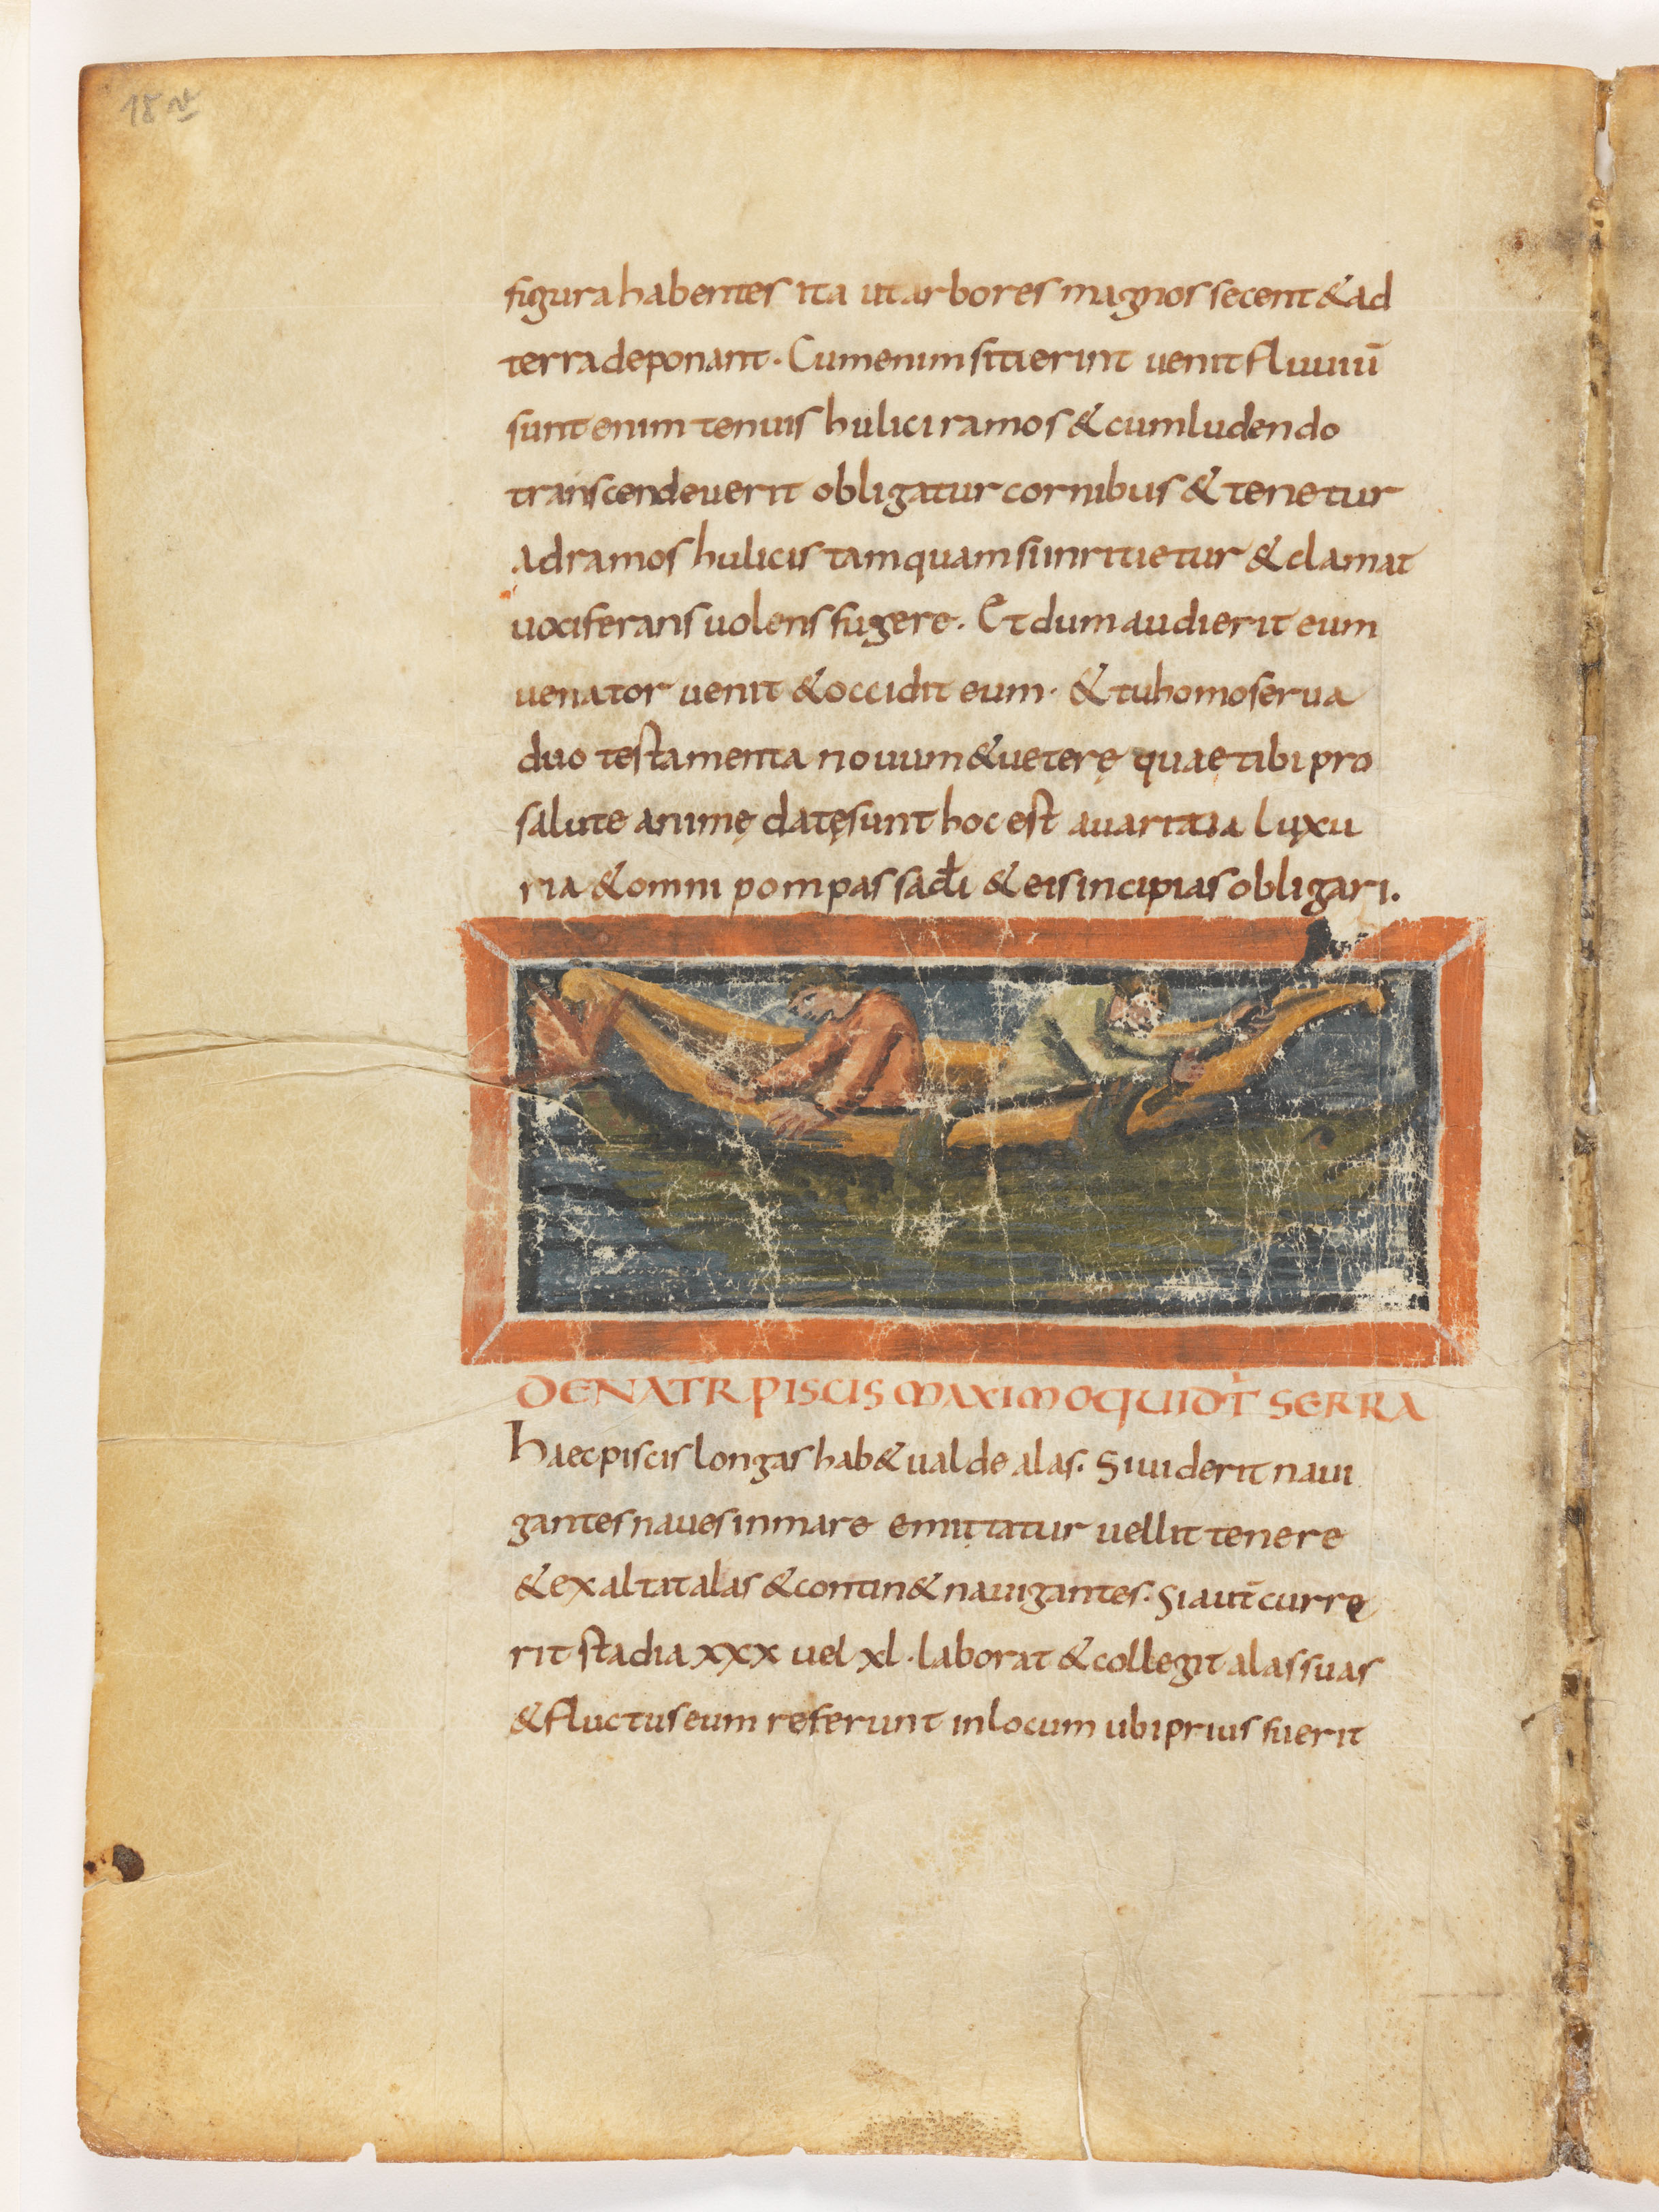 18v
figura habentes ita ut arbores magnos secent & ad
terra deponant. Cum enim sitierint uenit fluuiū
sunt enim tenuis hulici ramos & cum ludendo
transcendeuerit obligatur cornibus & tenetur
ad ramos hulicis tamquam si inritietur & clamat
uociferans uolens fugere. Et dum audierit eum
uenator uenit & occidit eum. & tu homo serua
duo testamenta nouum & ueterę quae tibi pro
salute animę datę sunt hoc est auaritaia luxu
ria & omni pompas sadł i & eis incipias obligari.
DE NATR PISCIS MAXIMO QUI DT̄ SERRA
Haec piscis longas hab& ualde alas. Si uiderit naui
gantes naues in mare emittatur uellit tenere
& exaltat alas & contin& nauigantes. Si aut̄ curre
rit stadia xxx uel xl. laborat & collegit alas suas
& fluctus eum referunt in locum ubi prius fuerit